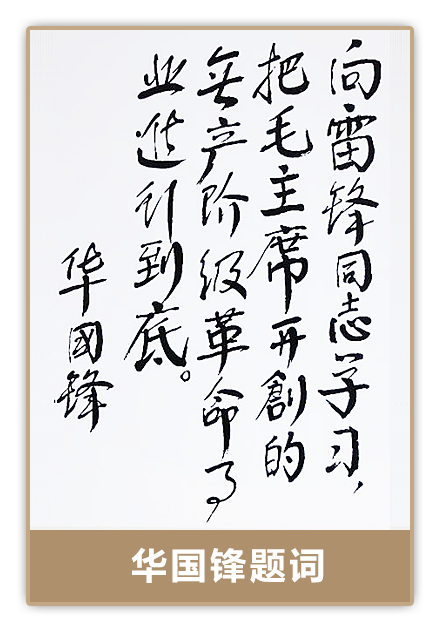 向雷锋同志学习，
把毛主席开創的
无产阶级革命事
业進行到底。
华國锋
华国锋题词